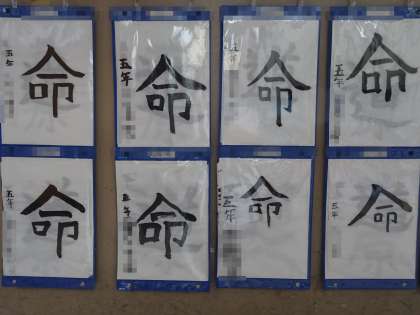 命
五年
命
五年
命
五年
命
五年
命
五年
命
五年
命
五年
命
五年